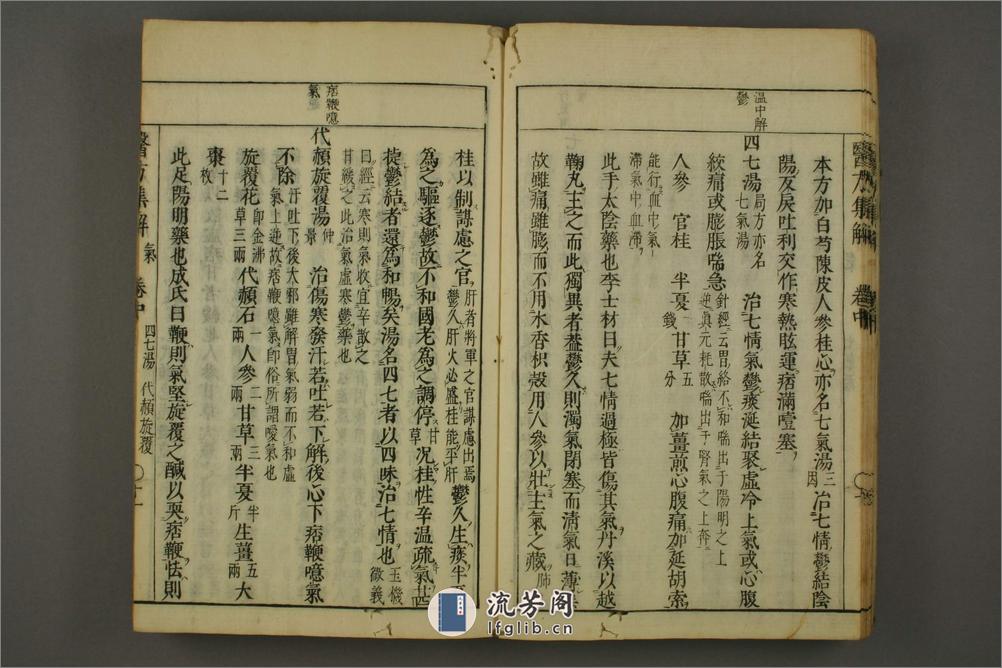 醫方集解
卷中
本方加白芍陳皮人參桂心亦名七氣湯三因治七情鬱結陰
陽反戾吐利交作寒熱眩運痞滿噎塞
溫中解鬱
四七湯局方亦名七氣湯 治七情氣鬱痰涎結聚虛冷上氣或心腹
絞痛或膨脹喘急針經云胃絡不和喘出于陽明之上逆真元耗散喘出于腎氣之上奔
人參 官桂 半夏錢 甘草五分 加薑煎心腹痛加延胡索
能行血中氣滯氣中血滯
此手太陰藥也李士材曰夫七情過極皆傷其氣丹溪以越
鞠丸主之而此獨異者葢鬱久則濁氣閉塞而清氣日薄矣
故雖痛雖膨而不用水香枳殼用人參以壯主氣之藏肺
桂以制謀慮之官肝者將軍之官謀慮出焉鬱久肝火必盛桂能平肝鬱久生痰半
為之驅逐鬱故不和國老為之調停甘草况桂性辛温疏氣甘四
㨗鬱結者還為和暢矣湯名四七者以四味治七情也玉機微義
曰經云寒則氣收宜辛散之甘緩之此治氣虛寒鬱藥也
痞鞕噫氣
代赭旋覆湯仲景 治傷寒發汗若吐若下解後心下痞鞕噫氣
不除汗吐下後大邪雖解胃氣弱而不和虛氣上逆故痞鞕噫氣即俗所謂噯氣也
旋覆花即金沸草三兩 代赭石一兩 人參二兩 甘草三兩 半夏半斤 生薑五兩 大
棗十二枚
此足陽明藥也成氏曰鞕則氣堅旋覆之醎以耎痞鞕怯則
醫方集解 氣 卷中 四七湯 代赭旋覆 十一
流芳阁
lfglib.cn